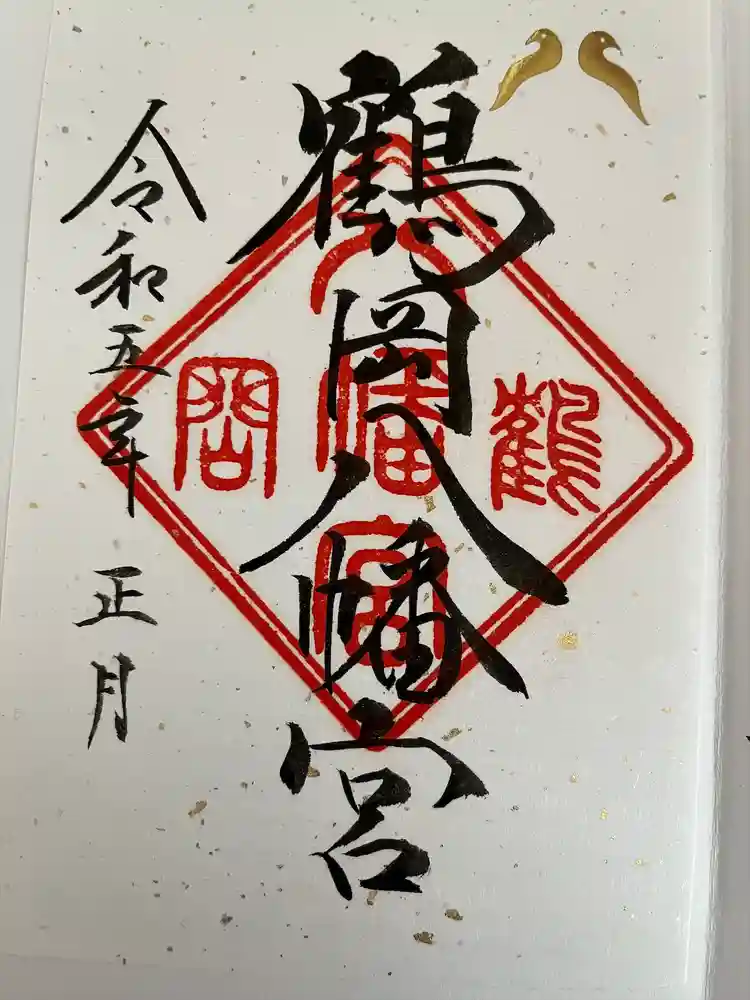 鶴岡八幡宮
令和五年 正月
鶴
八
幡
宮
岡